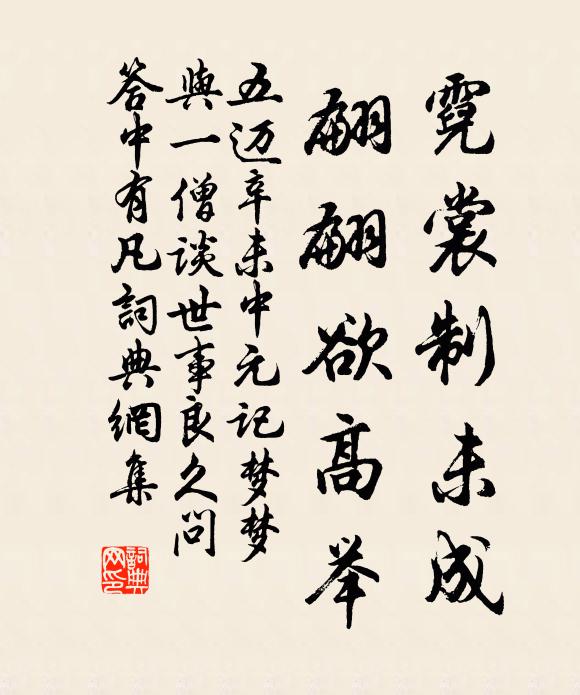 霓裳制未成
翩翩欲高举
五迈辛未中元记梦梦
與一僧谈世事良久问
答中有凡詞典網集
詞典
网印